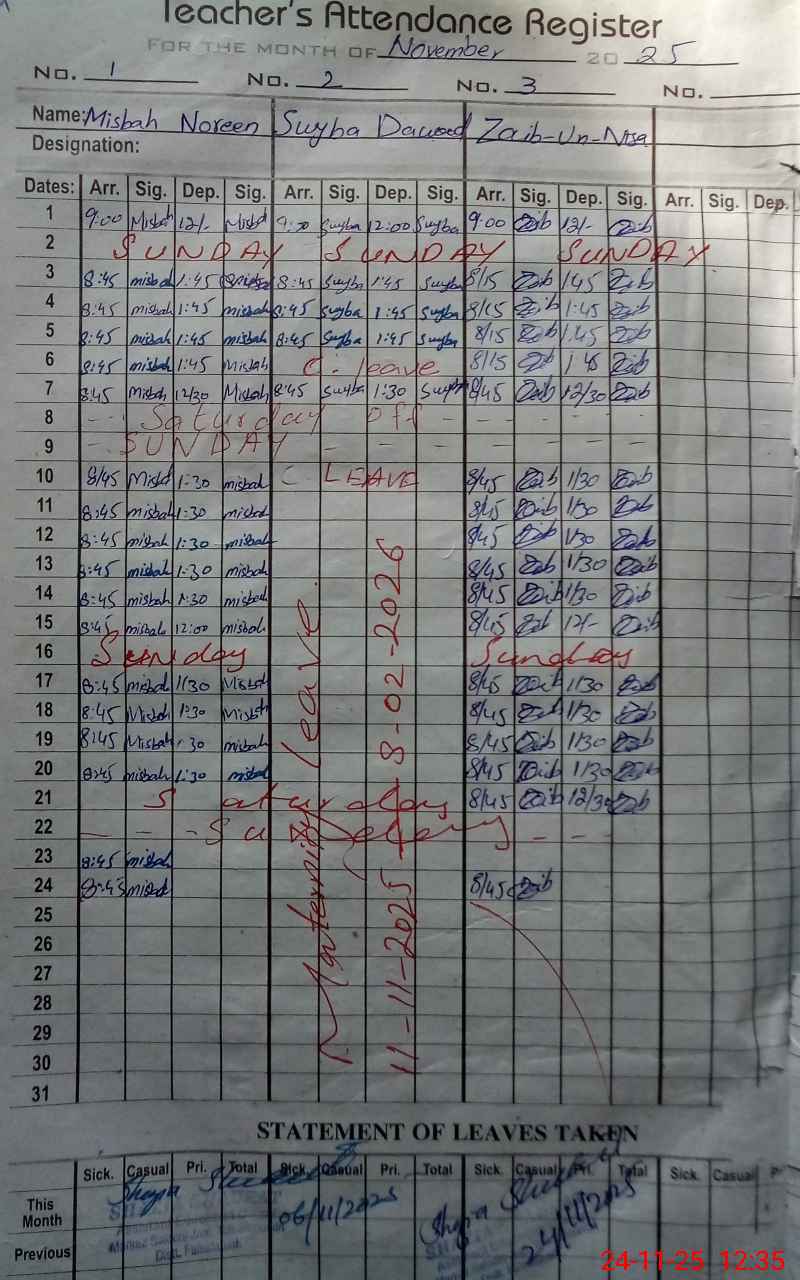 Teacher's Attendance Register
FOR THE MONTH OF November 20 25
No. 1 No. 2 No. 3 No.
Name: Misbah Noreen Suyba Dawood Zaib-Un-Nisa
Designation:
Dates: Arr. Sig. Dep. Sig. Arr. Sig. Dep. Sig. Arr. Sig. Dep. Sig. Arr. Sig. Dep.
1 9:00 Misbah 12/- Misbah 12:00 Suyba 9:00 Zaib 12/- Zaib
2 SUNDAY SUNDAY SUNDAY
3 8:45 misbah 1:45 8:45 Suyba 1:45 Suyba 8/15 Zaib 1:45 Zaib
4 8:45 misbah 1:45 misbah 8:45 Suyba 1:45 Suyba 8/15 Zaib 1:45 Zaib
5 8:45 misbah 1:45 misbah 8:45 Suyba 1:45 Suyba 8/15 Zaib 1:45 Zaib
6 8:45 misbah 1:45 Misbah C. leave 8/15 Zaib 1:45 Zaib
7 8:45 Misbah 12/30 Misbah 8:45 Suyba 1:30 Suyba 8/45 Zaib 12/30 Zaib
8 - - Saturday off - - - - -
9 - SUNDAY - - - - - -
10 8/45 Misbah 1:30 misbah C. LEAVE 8/45 Zaib 1/30 Zaib
11 8:45 misbah 1:30 misbah 8/45 Zaib 1/30 Zaib
12 8:45 misbah 1:30 misbah 8/45 Zaib 1/30 Zaib
13 8:45 misbah 1:30 misbah 8/45 Zaib 1/30 Zaib
14 8:45 misbah 1:30 misbah 8/45 Zaib 1/30 Zaib
15 8:45 misbah 12:00 misbah 8/45 Zaib 12/- Zaib
16 Sunday Sunday
17 8:45 misbah 1/30 Misbah 8/45 Zaib 1/30 Zaib
18 8:45 Misbah 1:30 Misbah 8/45 Zaib 1/30 Zaib
19 8:45 Misbah 1:30 misbah 8/45 Zaib 1/30 Zaib
20 8:45 misbah 1:30 misbah 8/45 Zaib 1/30 Zaib
21 Saturday 8/45 Zaib 12/30 Zaib
22 - - - Sunday - - -
23 8:45 misbah
24 8:45 misbah 8/45 Zaib
25
26
27
28
29
30
31
Maternity leave.
11-11-2025 8-02-2026
STATEMENT OF LEAVES TAKEN
Sick. Casual Pri. Total Sick. Casual Pri. Total Sick Casual Pri. Total Sick Casual P
This Month
06/11/2025 24/11/2025
Previous
24-11-25 12:35